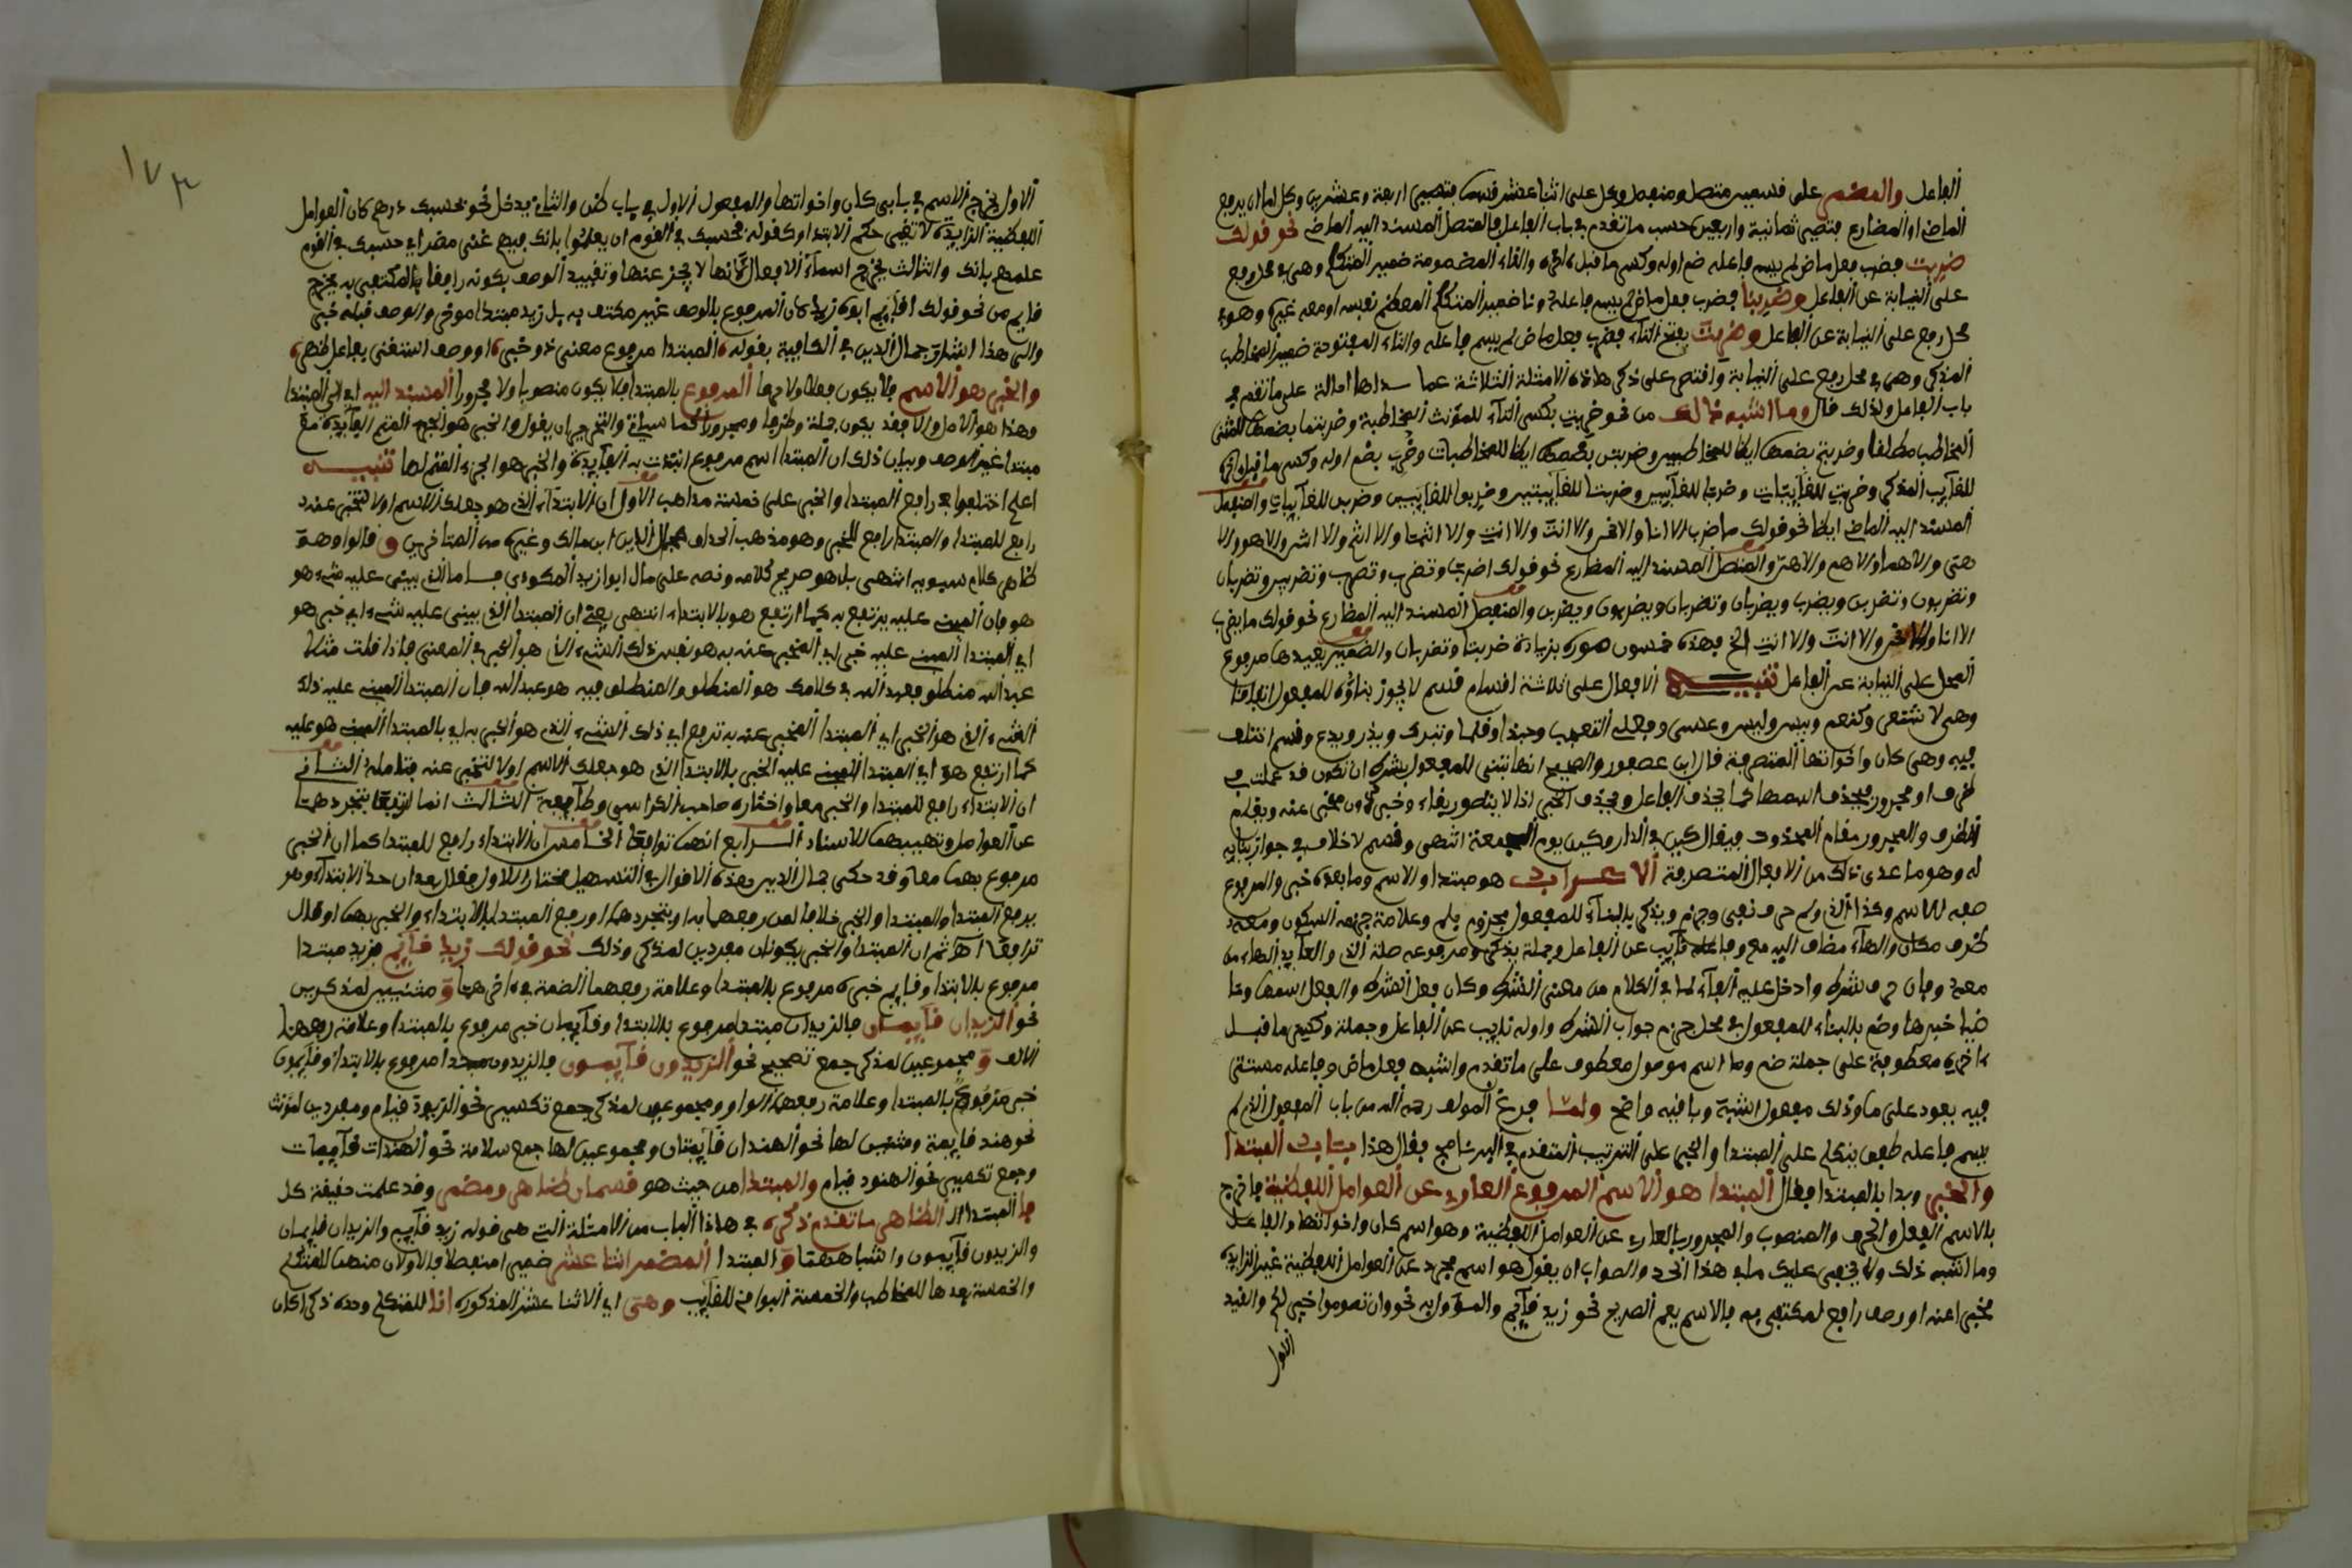 الفاعل والمضمر على قسمين متصل ومنفصل وكل على اثنا عشر قسما فتصير اربعة وعشرين وكل اما ان يرفع
الماضي او المضارع فتصير ثمانية واربعين حسب ما تقدم في باب الفاعل فالمتصل المسند اليه الماضي نحو قولك
ضربت فضرب فعل ماض لم يسم فاعله ضم اوله وكسر ما قبل ءاخره والتاء المضمومة ضمير المتكلم وهي في محل رفع
على النيابة عن الفاعل وضربنا فضرب فعل ماض لم يسم فاعله ونا ضمير المتكلم المعظم نفسه او معه غيره وهو في
محل رفع على النيابة عن الفاعل وضربت بفتح التاء فضرب فعل ماض لم يسم فاعله والتاء المفتوحة ضمير المخاطب
المذكر وهي في محل رفع على النيابة واقتصر على ذكر هاذه الامثلة الثلاثة عما سواها احالة على ما تقدم في
باب الفاعل ولذلك قال وما اشبه ذالك من نحو ضربت بكسر التاء للمؤنث المخاطبة وضربتما بضمها للمثنى
المخاطب مطلقا وضربتم بضمها ايضا للمخاطبين وضربتن بضمها ايضا للمخاطبات وضرب بضم اوله وكسر ما قبل ءاخره
للغايب المذكر وضربت للغايبة وضربا للغايبين وضربتا للغايبتين وضربوا للغايبين وضربن للغايبات والمنفصل
المسند اليه الماضي ايضا نحو قولك ما ضرب الا انا والا نحن والا انت والا انت والا انتما والا انتم والا انتن والا هو والا
هي والا هما والا هم والا هن والمتصل المسند اليه المضارع نحو قولك اضرب ونضرب وتضرب وتضربين وتضربان
وتضربون وتضربن ويضرب ويضربان وتضربان ويضربون ويضربن والمنفصل المسند اليه المضارع نحو قولك ما يضرب
الا انا والا نحن والا انت والا انت الخ فهذه خمسون صورة بزيادة ضربتا وتضربان والضمير بعيدها مرفوع
المحل على النيابة عن الفاعل تنبيه الافعال على ثلاثة اقسام قسم لا يجوز بناؤه للمفعول اتفاقا
وهي لا تتصرف كنعم وبيس وليس وعسى وفعل التعجب وحبذا وقلما وتبرك ويذر ويدع وقسم اختلف
فيه وهي كان واخواتها المتصرفة قال ابن عصفور والصحيح انها تبنى للمفعول بشرط ان تكون قد عملت في
ظرف او مجرور فيحذف اسمها كما يحذف الفاعل ويحذف الخبر اذا لا يتصور بقاء وخبر دون مخبر عنه ويقام
الظرف والمجرور مقام المحذوف فيقال كين في الدار وكين يوم الجمعة انتهى وقسم لا خلاف في جواز بنايه
له وهو ما عدى ذالك من الافعال المتصرفة الاعراب هو مبتدا والاسم وما بعده خبر والمرفوع
صفة للاسم وكذا الذي ولم حرف نفي وجزم ويذكر بالبناء للمفعول مجزوم بلم وعلامة جزمه السكون ومعه
ظرف مكان والهاء مضاف اليه مع وفاعله نايب عن الفاعل وجملة يذكر ومرفوعه صلة الذي والعايد الهاء من
معه وفان حرف شرط وادخل عليه الفاء لما في الكلام من معنى الشرط وكان فعل الشرط والفعل اسمها وما
ضيا خبرها وضم بالبناء للمفعول في محل جزم جواب الشرط واوله نايب عن الفاعل وجملة وكسر ما قبل
ءاخره معطوفة على جملة ضم وما اسم موصول معطوف على ما تقدم واشبه فعل ماض وفاعله مستتر
فيه يعود على ما وذلك مفعول اشبه وباقيه واضح ولما فرغ المولف رحمه الله من باب المفعول الذي لم
يسم فاعله طفق يتكلم على المبتدا والخبر على الترتيب المتقدم في البرنامج فقال هذا باب المبتدا
والخبر وبدا بالمبتدا فقال المبتدا هو الاسم المرفوع العاري عن العوامل اللفظية فاخرج
بالاسم الفعل والحرف والمنصوب والمجرور بالعاري عن العوامل اللفظية وهو اسم كان واخواتها والفاعل
وما اشبه ذلك ولا يخفى عليك ما في هذا الحد والصواب ان يقول هو اسم مجرد عن العوامل اللفظية غير الزايدة
مخبرا عنه او وصف رافع لمكتفى به فالاسم يعم الصريح نحو زيد قايم والمؤول به نحو وان تصوموا خير لكم والقيد
الاول
١٧٣
الاول يخرج الاسم في بابي كان واخواتها والمفعول الاول في باب ظن والثاني يدخل نحو بحسبك درهم كان العوامل
اللفظية الزايدة لا تغير حكم الابتدا وكقوله بحسبك في القوم ان يعلموا بانك فيهم غني مضر اي حسبك في القوم
علمهم بانك والثالث يخرج اسماء الافعال لانها لا يخبر عنها وتقييد الوصف بكونه رافعا لمكتفى به يخرج
قايم من نحو قولك اقايم ابوه زيد كان المرفوع بالوصف غير مكتف به بل زيد مبتدا موخر والوصف قبله خبر
والى هذا اشار جمال الدين في الكافية بقوله المبتدا مرفوع معنى ذو خبر او وصف استغنى بفاعل ظهر
والخبر هو الاسم فلا يكون فعلا ولا حرفا المرفوع بالمبتدا فلا يكون منصوبا ولا مجرورا المسند اليه اي الى المبتدا
وهذا هو الاصل والا فقد يكون جملة وظرفا ومجرورا كما سياتي والتحرير ان يقول والخبر هو الجزء المتم الفايدة مع
مبتدا غير الوصف وبيان ذلك ان المبتدا اسم مرفوع ابتدات به الفايدة والخبر هو الجزء المتم لها تنبيه
اعلم اختلفوا في رافع المبتدا والخبر على خمسة مذاهب الاول ان الابتداء الذي هو جعلك الاسم اولا لتخبر عنه
رافع للمبتدا والمبتدا رافع للخبر وهو مذهب الحذاق جمال الدين ابن مالك وغيره من المتاخرين وقالوا وهو
ظاهر كلام سيبويه انتهى بل هو صريح كلامه ونصه على ما قال ابوا زيد المكودي فاما الذي يبنى عليه شيء هو
هو فان المبني عليه يرتفع به كما ارتفع هو بالابتداء انتهى يعني ان المبتدا الذي يبنى عليه شيء اي خبر هو
اي المبتدا المبني عليه خبر اي المخبر عنه به هو نفس ذلك الشيء الذي هو الخبر في المعنى فاذا قلت مثلا
عبد الله منطلق فعبد الله في كلامك هو المنطلق والمنطلق فيه هو عبد الله فان المبتدا المبني عليه ذلك
الشيء الذي هو الخبر اي المبتدا المخبر عنه به ترفع اي ذلك الشيء الذي هو الخبر به اي بالمبتدا المبني هو عليه
كما ارتفع هو اي المبتدا المبني عليه الخبر بالابتدا الذي هو جعلك الاسم اولا لتخبر عنه فتامله الثاني
ان الابتداء رافع للمبتدا والخبر معا واختاره صاحب الكراسي وطايفة الثالث انما ارتفعا بتجردهما
عن العوامل وتهييهما للاسناد الرابع انهما ترافعا الخامس ان الابتداء رافع للمبتدا كما ان الخبر
مرفوع بهما معا وقد حكى جمال الدين هذه الاقوال في التسهيل مختارا للاول فقال بعد ان حد الابتداء وهو
يرفع المبتدا والمبتدا والخبر خلافا لمن رفعهما به او بتجردهما او رفع المبتدا بالابتداء والخبر بهما او قال
ترافعا اهـ ثم ان المبتدا والخبر يكونان مفردين لمذكر وذلك نحو قولك زيد قايم فزيد مبتدا
مرفوع بالابتدا وقايم خبره مرفوع بالمبتدا وعلامة رفعهما الضمة في ءاخرهما ومثنيين لمذكرين
نحو الزيدان قايمان فالزيدان مبتدا مرفوع بالابتدا وقايمان خبر مرفوع بالمبتدا وعلامة رفعهما
الالف ومجموعين لمذكر جمع تصحيح نحو الزيدون قايمون فالزيدون مبتدا مرفوع بالابتدا وقايمون
خبر مرفوع بالمبتدا وعلامة رفعهما الواو ومجموعين لمذكر جمع تكسير نحو الزيود قيام ومفردين لمؤنث
نحو هند قايمة ومثنيين لها نحو الهندان قايمتان ومجموعين لها جمع سلامة نحو الهندات قايمات
وجمع تكسير نحو الهنود قيام والمبتدا من حيث هو قسمان ظاهر ومضمر وقد علمت حقيقة كل
فالمبتدا الظاهر ما تقدم ذكره في هاذا الباب من الامثلة التي هي قوله زيد قايم والزيدان قايمان
والزيدون قايمون واشباههما والمبتدا المضمر اثنا عشر ضميرا منفصلا فالاولان منها للمتكلم
والخمسة بعدها للمخاطب والخمسة البواقي للغايب وهي اي الاثنا عشر المذكورة انا للمتكلم وحده ذكرا كان